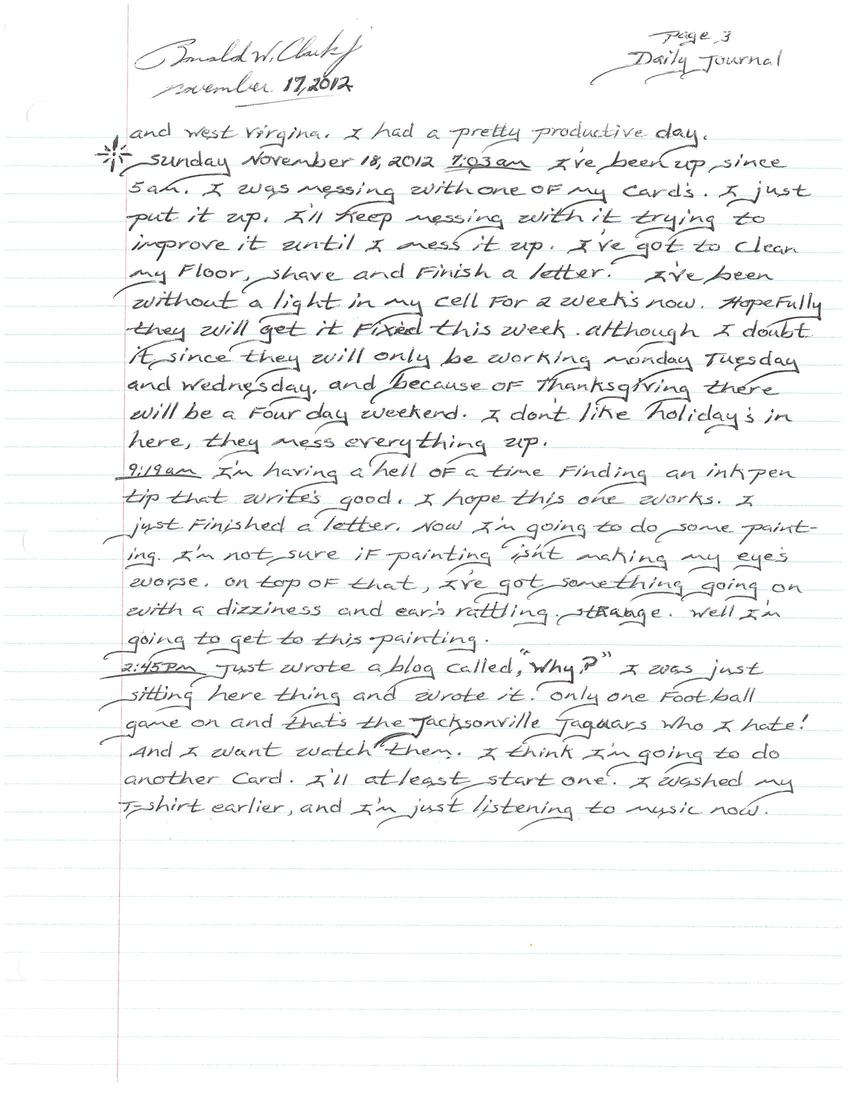 Ronald W. Clark Jr
Page 3
November 17, 2012
Daily Journal
and West Virgina. I had a pretty productive day.
Sunday November 18, 2012 7:03am I've been up since
5am. I was messing with one of my card's. I just
put it up. I'll keep messing with it trying to
improve it until I mess it up. I've got to clean
my floor, shave and finish a letter. I've been
without a light in my cell for 2 week's now. Hopefully
they will get it fixed this week. although I doubt
it, since they will only be working monday Tuesday
and Wednesday, and because of Thanksgiving there
will be a four day weekend. I don't like holiday's in
here, they mess everything up.
9:19am I'm having a hell of a time finding an ink pen
tip that write's good. I hope this one works. I
just finished a letter. Now I'm going to do some paint-
ing. I'm not sure if painting isn't making my eye's
worse. on top of that, I've got something going on
with a dizziness and ear's rattling. strange. Well I'm
going to get to this painting.
2:45pm Just wrote a blog called, "Why?" I was just
sitting here thing and wrote it. only one football
game on and that's the Jacksonville Jaguars who I hate!
And I want watch them. I think I'm going to do
another card. I'll at least start one. I washed my
T-shirt earlier, and I'm just listening to music now.